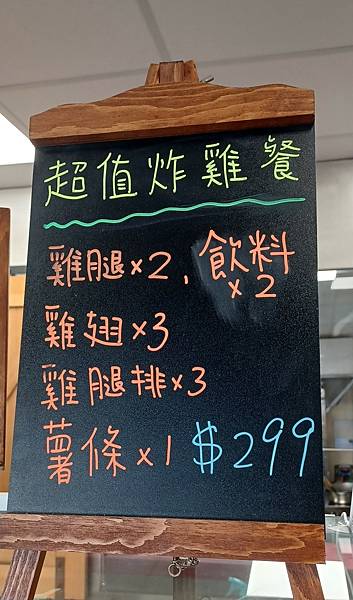 超值炸雞餐
雞腿×2、飲料×2
雞翅×3
雞腿排×3
薯條×1 $299